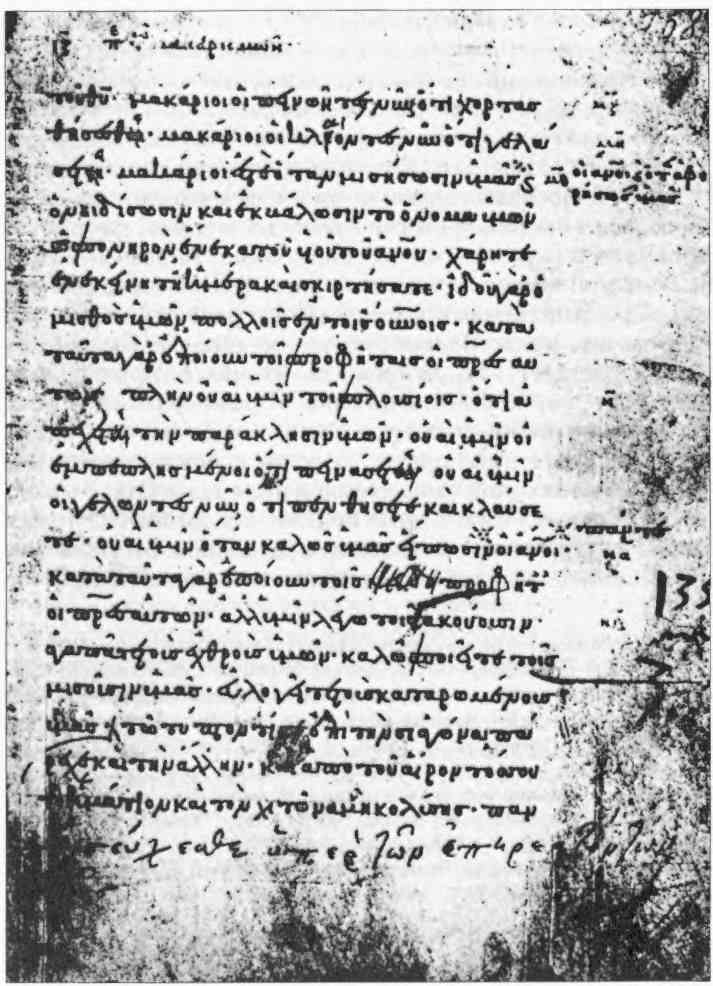 μακαρισμῶν
τοῦ θῦ· μακάριοι οἱ πεινῶντες νῦν ὅτι χορτασ
θήσεσθε· μακάριοι οἱ κλαίοντες νῦν ὅτι γελά
σετε· μακάριοί ἐστε ὅταν μισήσωσιν ὑμᾶς οἱ ἄνοι κ ὅταν ἀφο
ρίσωσιν ὑμᾶς
ὀνειδίσωσιν καὶ ἐκβάλωσιν τὸ ὄνομα ὑμῶν
ὡς πονηρὸν ἕνεκα τοῦ υἱοῦ τοῦ ἀνου· χάρητε
ἐν ἐκείνη τῆ ἡμέρα καὶ σκιρτήσατε· ἰδοὺ γὰρ ὁ
μισθὸς ὑμῶν πολλοῖς ἐν τοῖς οὐνοῖς· κατὰ
ταῦτα γὰρ ἐποίουν τοῖς προφήταις οἱ πρες αὐ
τῶν πλὴν οὐαὶ ὑμῖν τοῖς πλουσίοις· ὅτι ἀ
πέχετε τὴν παράκλησιν ὑμῶν· οὐαὶ ὑμῖν οἱ
ἐμπεπλησμένοι ὅτι πεινάσετε οὐαὶ ὑμῖν
οἱ γελῶντες νῦν ὅτι πενθήσετε καὶ κλαύσε
τε· οὐαὶ ὑμῖν ὅταν καλῶς ὑμᾶς εἴπωσιν οἱ ἄνοι· πάντες
κατὰ ταῦτα γὰρ ἐποίουν τοῖς προφητ
οἱ πρες αὐτῶν· ἀλλ ὑμῖν λέγω τοῖς ἀκούουσιν· 133
ἀγαπᾶτε τοὺς ἐχθροὺς ὑμῶν· καλῶς ποιεῖτε τοῖς
μισοῦσιν ὑμᾶς· εὐλογεῖτε τοὺς καταρωμένους
ὑμᾶς τῶ τύπτοντί σε ἐπὶ τὴν σιαγόνα πα
ρεχε καὶ τὴν ἄλλην· καὶ ἀπὸ τοῦ αἴροντός σου
τὸ ἱμάτιον καὶ τὸν χιτῶνα μὴ κωλύσης· παν
εύχεσθε ὑπὲρ τῶν ἐπηρεαζόντων